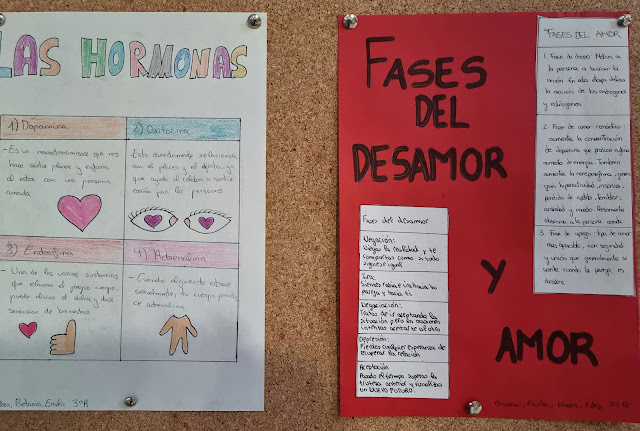 LAS HORMONAS
1) Dopamina
- Es un neurotransmisor que nos
hace sentir placer y euforia
al estar con una persona
amada
2) Oxitocina
Esta directamente relacionada
con el placer y el afecto, ya
que ayuda al cerebro a sentir
cariño por las personas
3) Endorfina
- Una de las varias sustancias
que elabora el propio cuerpo,
puede aliviar el dolor y dar
sensación de bienestar
4) Adrenalina
- Cuando alguien te atrae
sexualmente, tu cuerpo produ
ce adrenalina
Betania, Erika 3ºA
FASES
DEL
DESAMOR
Y
AMOR
Fases del desamor
Negación:
Niegas la realidad y te
comportas como si todo
siguiese igual
Ira:
Sientes rabia e ira hacia tu
pareja y hacia ti
Negociación:
Tratas de ir aceptando la
situación pero en ocasiones
intentas acercarte al otro
Depresión:
Pierdes cualquier esperanza de
recuperar la relación
Aceptación
Pasado el tiempo superas la
tristeza anterior y visualizas
un NUEVO FUTURO.
FASES DEL AMOR
1. Fase de deseo: Motiva a
la persona a buscar la
unión. En esta etapa destaca
la acción de los andrógenos
y estrógenos
2. Fase de amor romántico:
aumenta la concentración
de dopamina que produce
aumento de energía. También
aumenta la norepinefrina, gene
ra hiperactividad, insomnio,
pérdida de apetito, temblor,
ansiedad y mucho pensamiento
obsesivo a la persona amada
3. Fase de apego: tipo de amor
mas apacible, con seguridad
y unión que generalmente se
siente cuando la pareja es
duradera